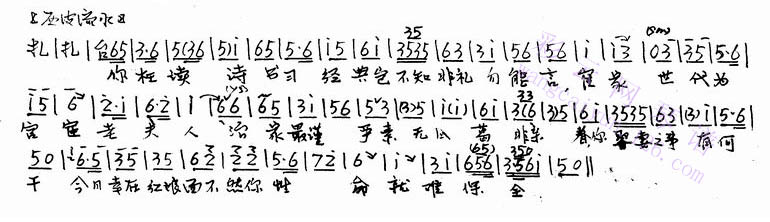 【西皮流水】
扎|扎|台65|3·6|5(36|5)i|65|5·6|i5|6i|3535|63|3i|56|56|i|i3|03|35|5·6|
你枉读 诗书习 经典岂不知非礼勿能言崔家 世代为
i5|6|2·i|6·2|i|66|65|3i|56|53|(3)5|i(i)|6i|3(6|3)5|6i|3535|63|(3)i|5·6|
官宦老夫人治家最谨 严素无瓜葛非亲眷你娶妻之事有何
50|6·5|35|35|62|22|5·6|72|6|i|3i|656|3561|50‖
干 今日幸在红娘面不然你性 命就难保全